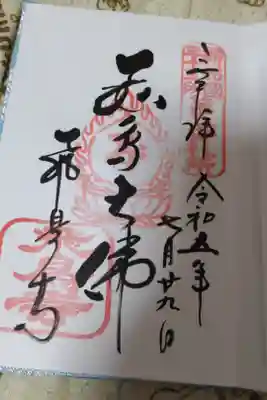 奉拝 令和五年
七月廿九日
飛鳥大佛
飛鳥寺